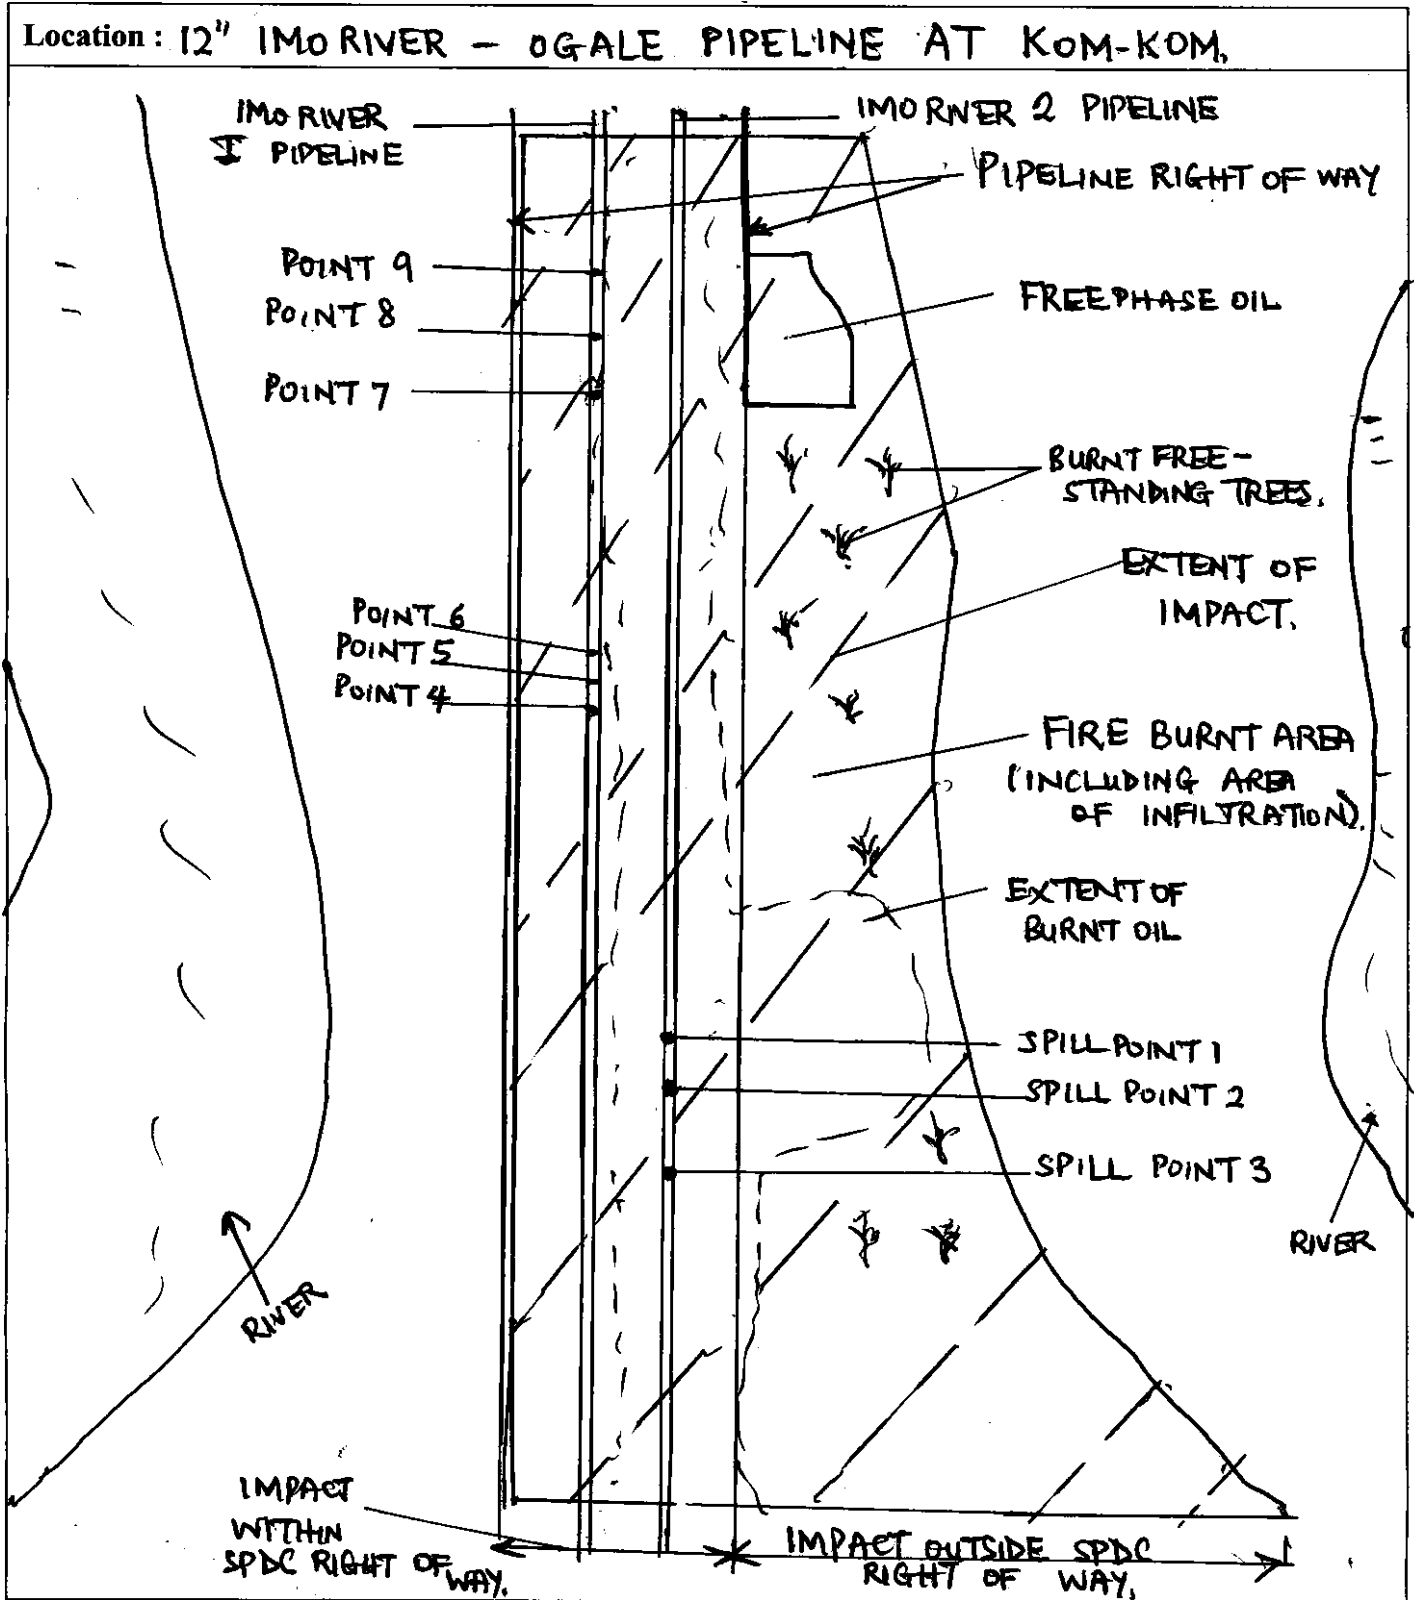 Location : 12" IMO RIVER – OGALE PIPELINE AT KOM-KOM.
IMO RIVER
I PIPELINE
IMO RIVER 2 PIPELINE
PIPELINE RIGHT OF WAY
POINT 9
POINT 8
POINT 7
FREEPHASE OIL
BURNT FREE-
STANDING TREES.
EXTENT OF
IMPACT.
POINT 6
POINT 5
POINT 4
FIRE BURNT AREA
(INCLUDING AREA
OF INFILTRATION).
EXTENT OF
BURNT OIL
SPILL POINT 1
SPILL POINT 2
SPILL POINT 3
RIVER
RIVER
IMPACT
WITHIN
SPDC RIGHT OF WAY.
IMPACT OUTSIDE SPDC
RIGHT OF WAY.